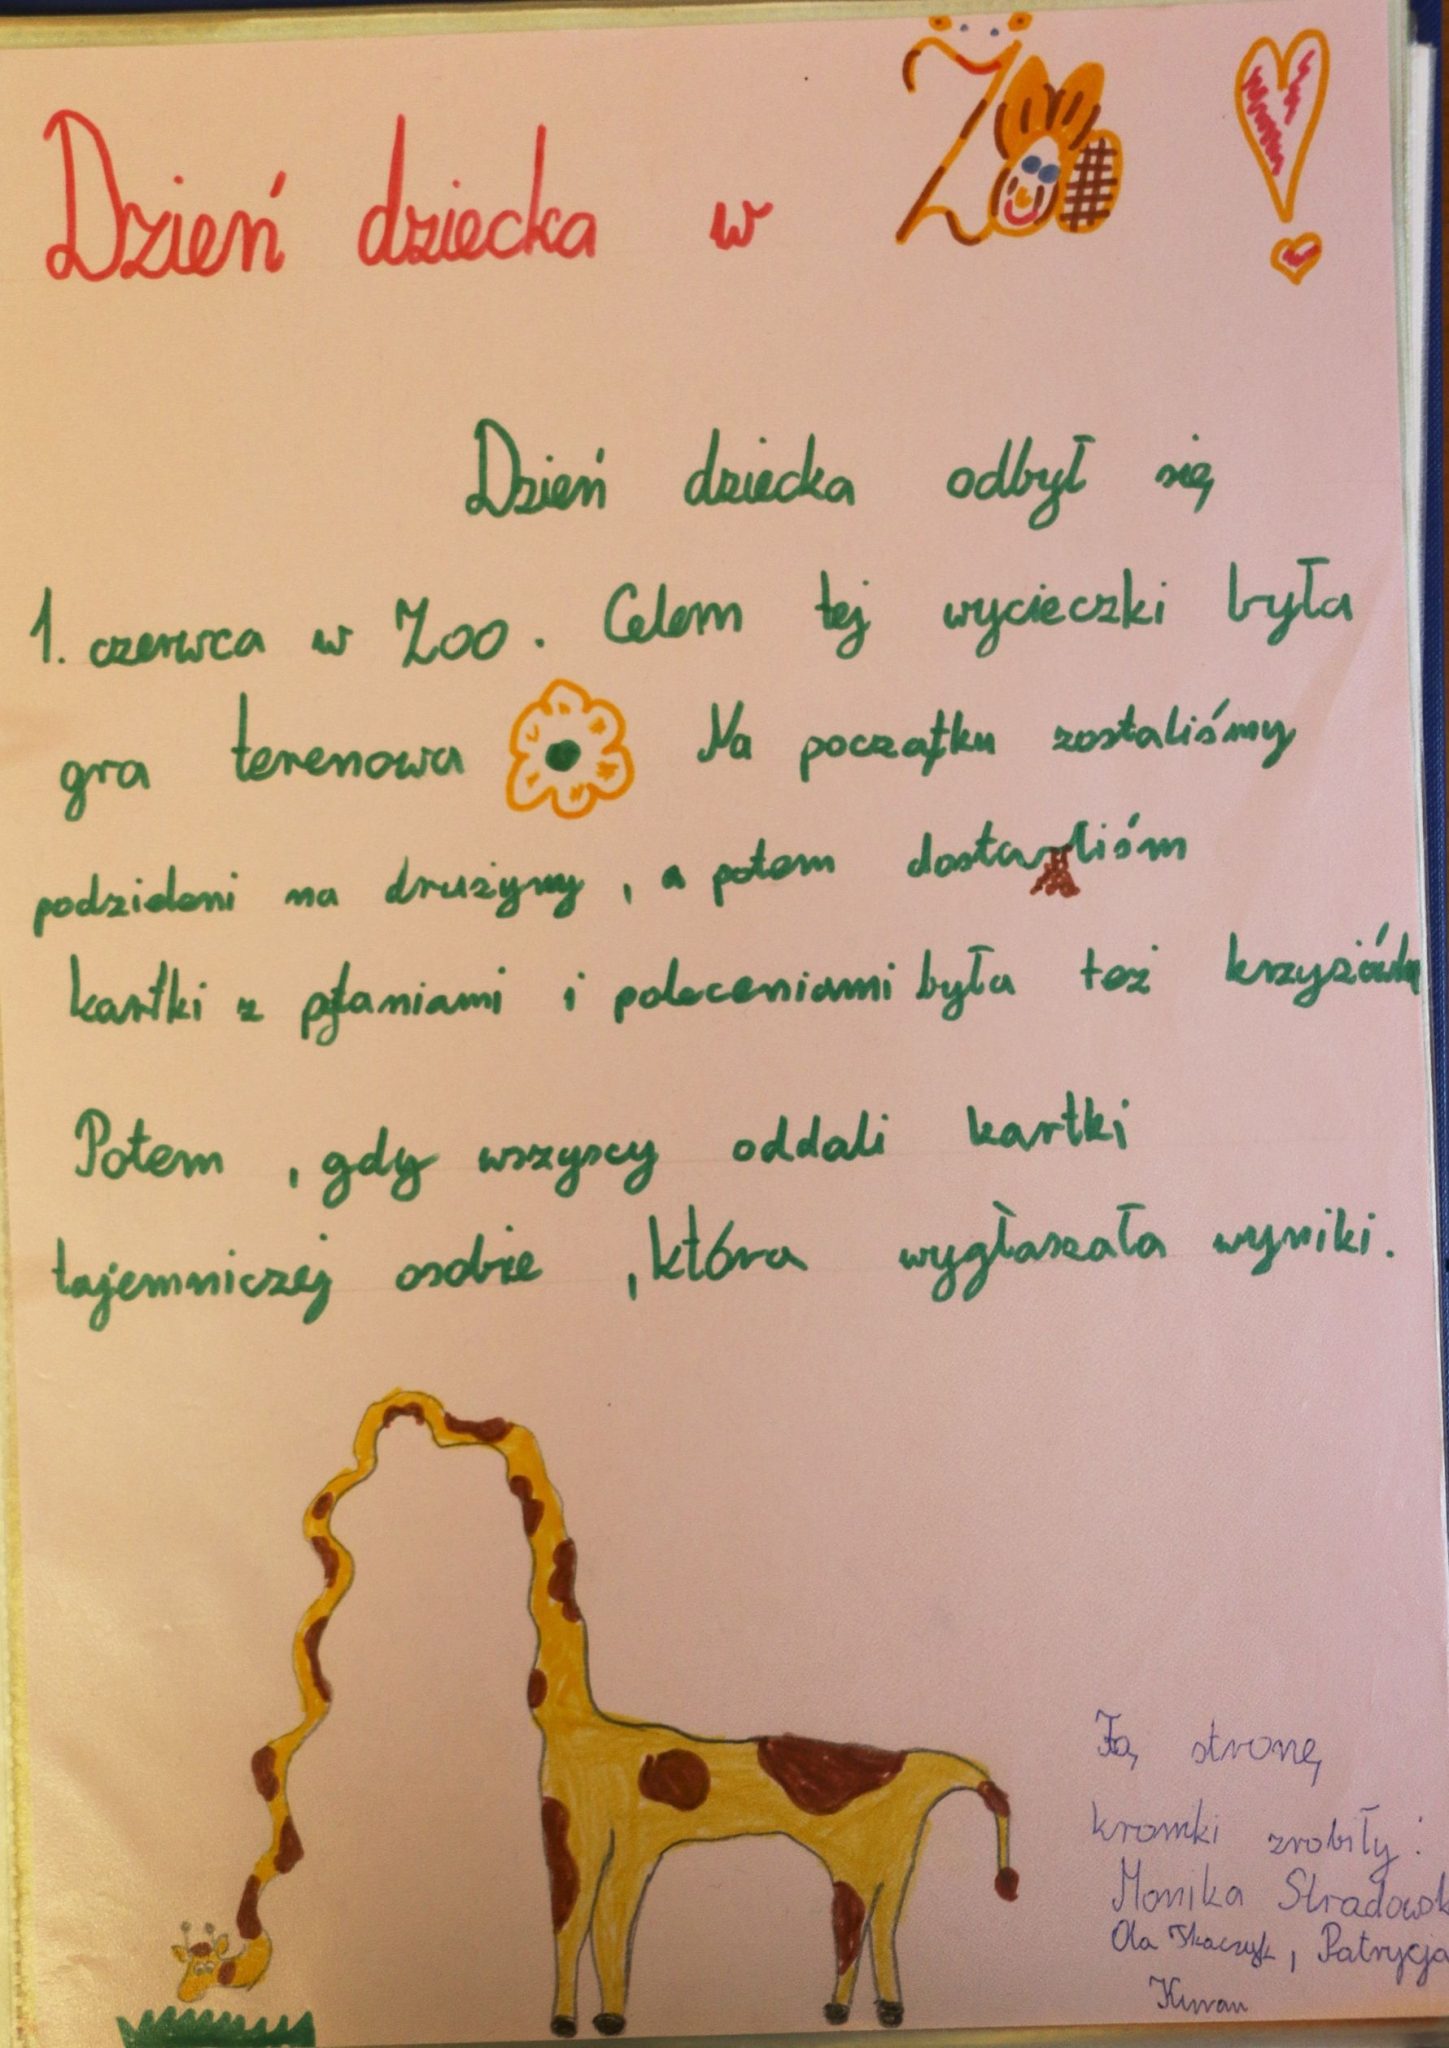 Dzień dziecka w Zoo!
Dzień dziecka odbył się
1. czerwca w Zoo. Celem tej wycieczki była
gra terenowa Na początku zostaliśmy
podzieleni na drużyny, a potem dostawaliśm
kartki z pytaniami i poleceniami była też krzyżówka
Potem, gdy wszyscy oddali kartki
tajemniczej osobie, która wygłaszała wyniki.
Tą stronę
kromki zrobiły:
Monika Stradowsk
Ola Tkaczyk, Patrycja